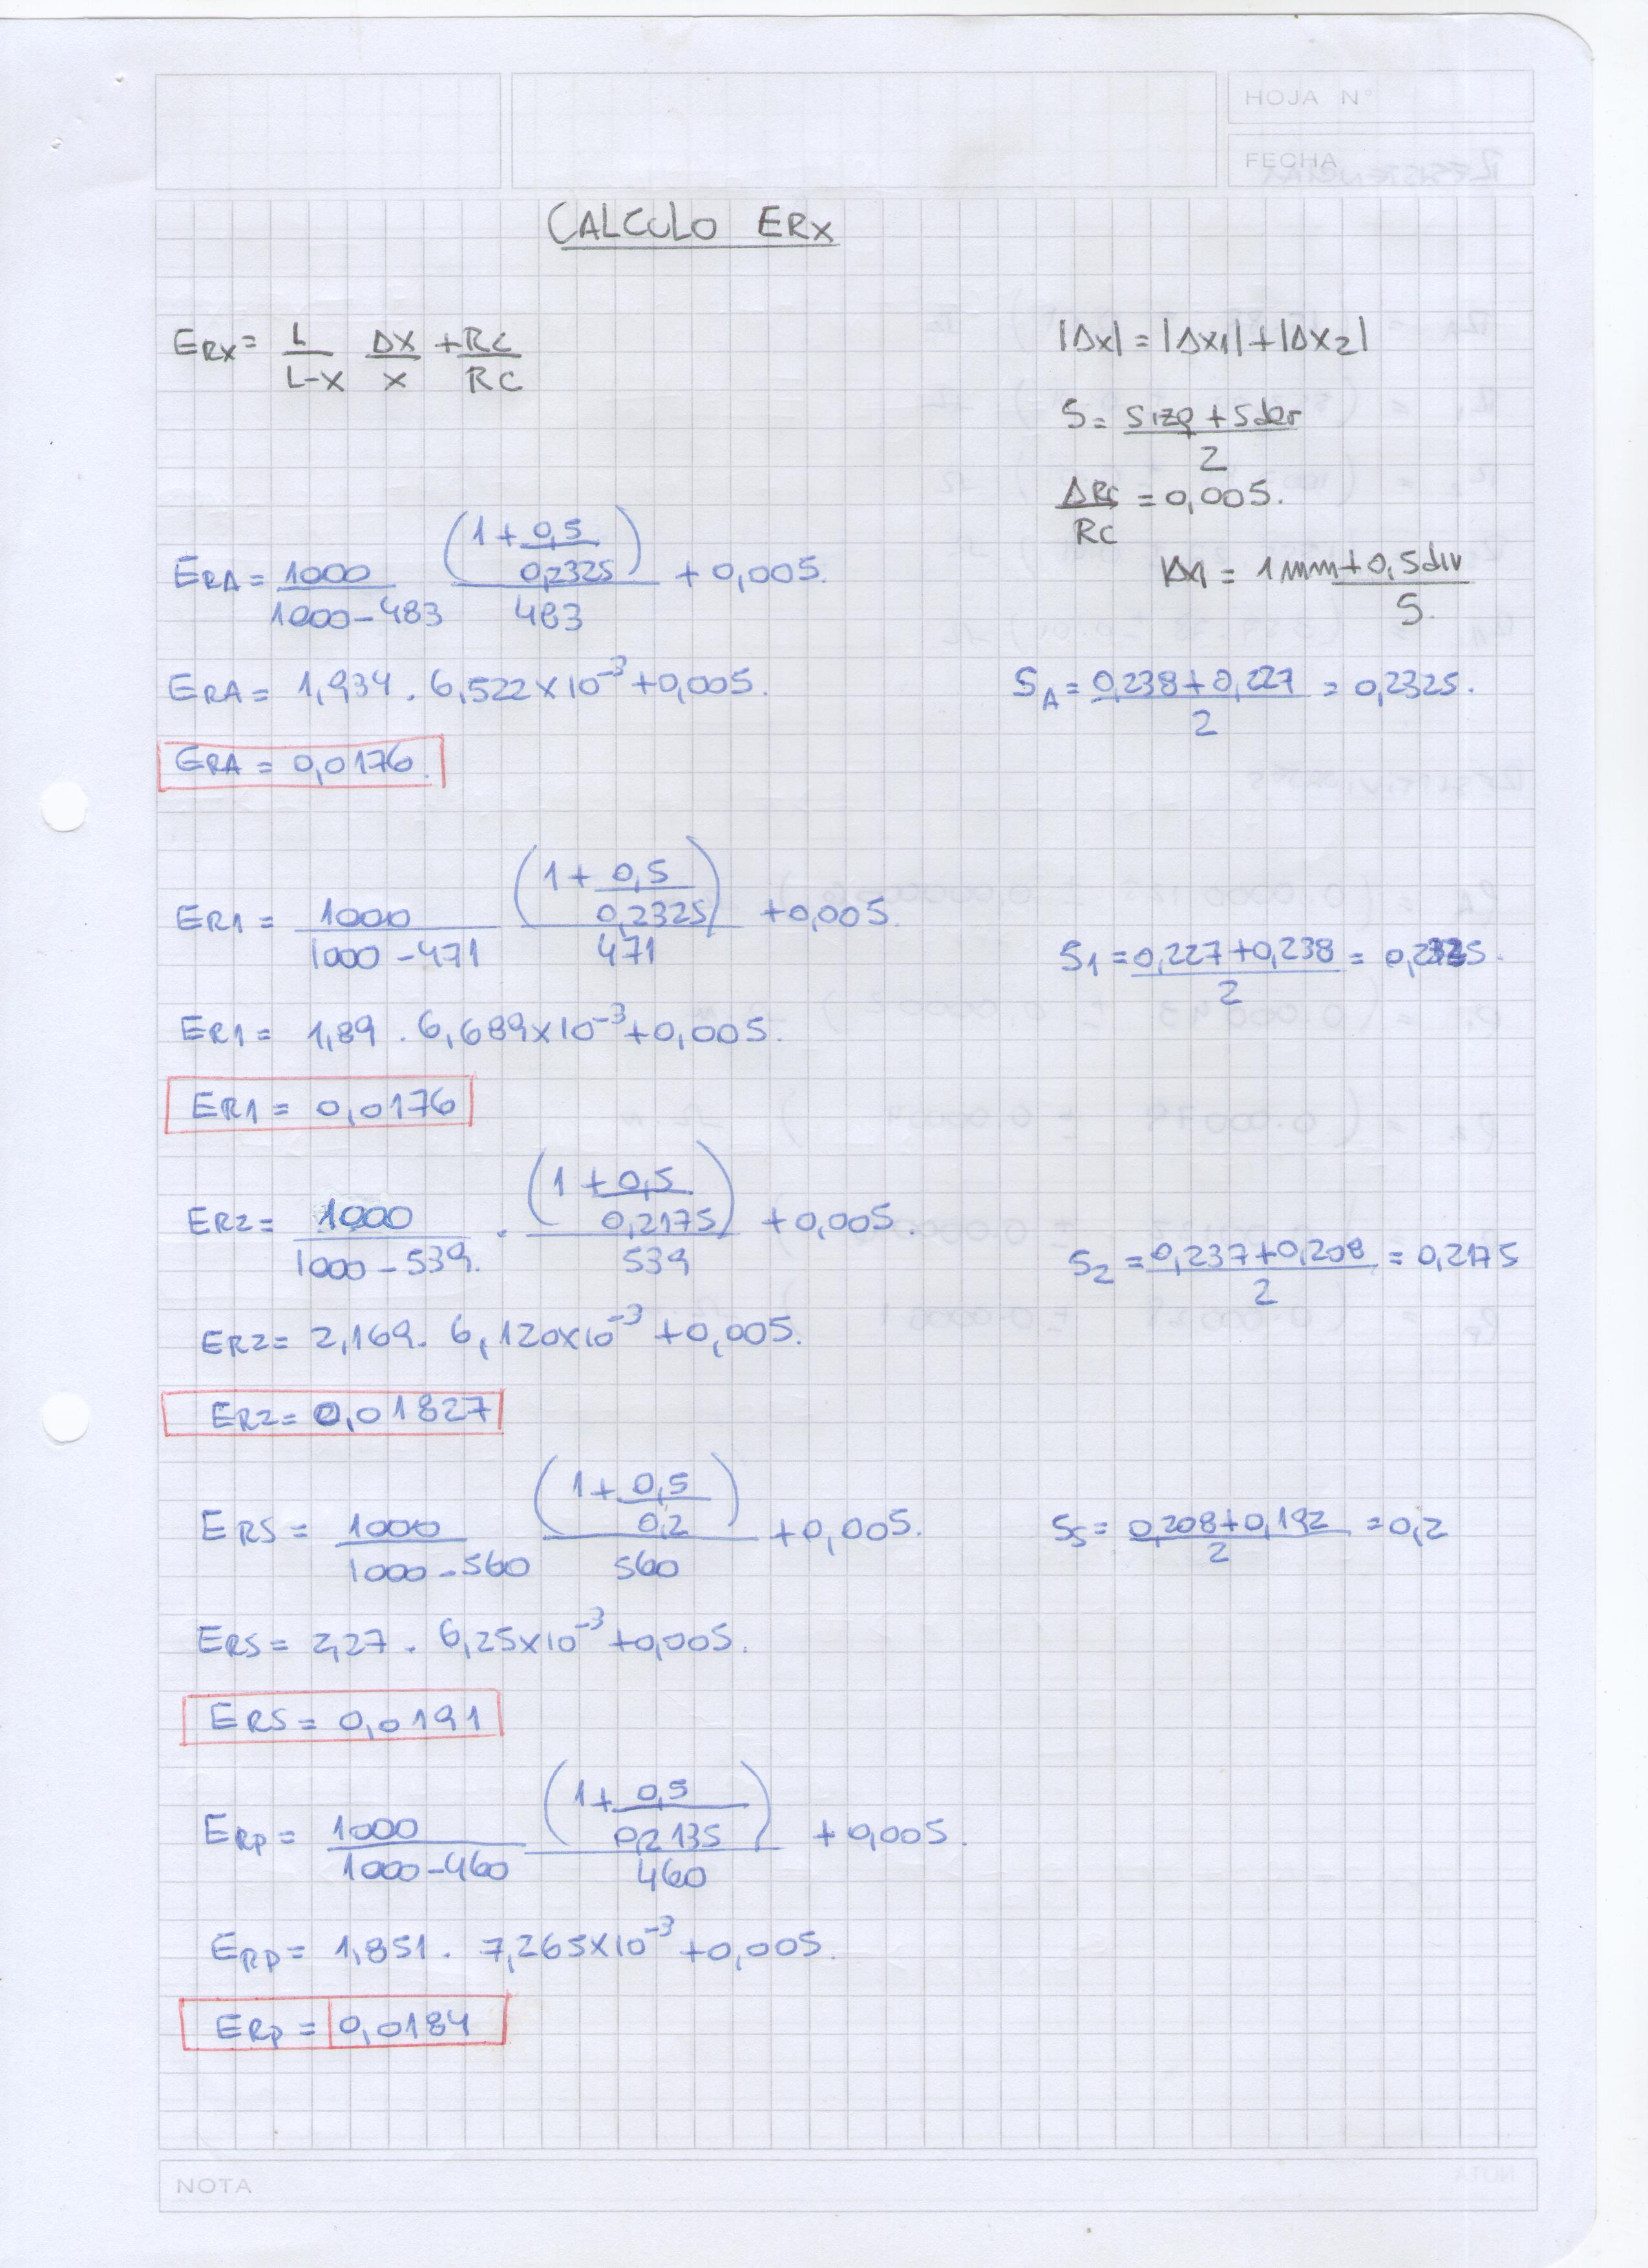 HOJA N°
FECHA
CALCULO ERx
ERX = L/(L-X) ΔX/X + RC/RC
|ΔX| = |ΔX1| + |ΔX2|
S = (Sizq + Sder)/2
ΔRC/RC = 0,005.
ΔX = (1mm + 0,5div)/S.
ERA = 1000/(1000-483) (1 + 0,5/0,2325)/483 + 0,005.
ERA = 1,934 . 6,522x10^-3 + 0,005.
SA = (0,238 + 0,227)/2 = 0,2325.
ERA = 0,0176.
ER1 = 1000/(1000-471) (1 + 0,5/0,2325)/471 + 0,005.
S1 = (0,227 + 0,238)/2 = 0,2325.
ER1 = 1,89 . 6,689x10^-3 + 0,005.
ER1 = 0,0176
ER2 = 1000/(1000-539.) . (1 + 0,5/0,2175)/539 + 0,005.
S2 = (0,237 + 0,208)/2 = 0,2175
ER2 = 2,169. 6,120x10^-3 + 0,005.
ER2 = 0,01827
ERS = 1000/(1000-560) (1 + 0,5/0,2)/560 + 0,005.
Ss = (0,208 + 0,192)/2 = 0,2
ERS = 2,27 . 6,25x10^-3 + 0,005.
ERS = 0,0191
ERp = 1000/(1000-460) (1 + 0,5/0,2135)/460 + 0,005.
ERp = 1,851 . 7,265x10^-3 + 0,005.
ERp = 0,0184
NOTA